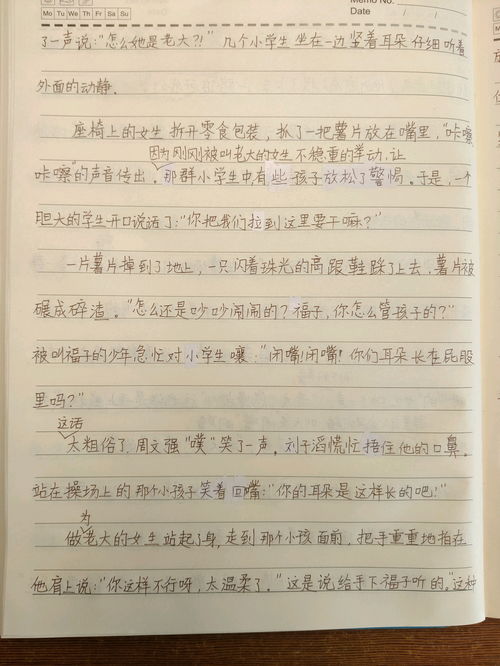 Mo Tu We Th Fr Sa Su
Memo No.
Date / /
了一声说:“怎么她是老大?!” 几个小学生坐在一边竖着耳朵仔细听着
外面的动静.
座椅上的女生拆开零食包装,抓了一把薯片放在嘴里,“咔嚓
因为刚刚被叫老大的女生不稳重的举动,让
咔嚓”的声音传出。那群小学生中有些孩子放松了警惕。于是,一个
胆大的学生开口说话了:“你把我们拉到这里要干嘛?”
一片薯片掉到了地上,一只闪着珠光的高跟鞋踩了上去,薯片被
碾成碎渣。“怎么还是吵吵闹闹的?福子,你怎么管孩子的?”
被叫福子的少年急忙对小学生嚷:“闭嘴!闭嘴!你们耳朵长在屁股
里吗?”
这话
太粗俗了,周文强“噗”笑了一声。刘子滔慌忙捂住他的口鼻。
站在操场上的那个小孩子笑着回嘴:“你的耳朵是这样长的吧!”
为
做老大的女生站起了身,走到那个小孩面前,把手重重地拍在
他肩上说:“你这样不行呀,太温柔了。”这是说给手下福子听的。“这种